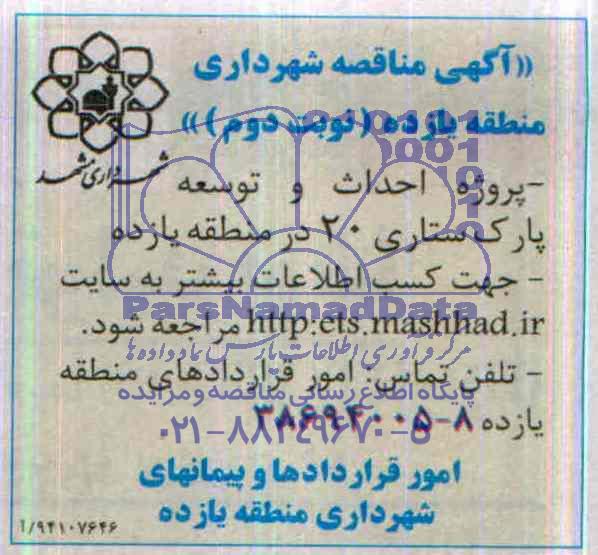 «آگهی مناقصه شهرداری
منطقه یازده (نوبت دوم)»
شهرداری مشهد
-پروژه احداث و توسعه
پارک ستاری ۲۰ در منطقه یازده
- جهت کسب اطلاعات بیشتر به سایت
http:ets.mashhad.ir مراجعه شود.
- تلفن تماس: امور قراردادهای منطقه
یازده ۸-۳۸۶۹۴۰۰۵
امور قراردادها و پیمانهای
شهرداری منطقه یازده
۹۴۱۰۷۶۴۶/آ
ParsNamadData
مرکز فرآوری اطلاعات پارس نماد داده ها
پایگاه اطلاع رسانی مناقصه و مزایده
۰۲۱-۸۸۳۴۹۶۷۰-۵